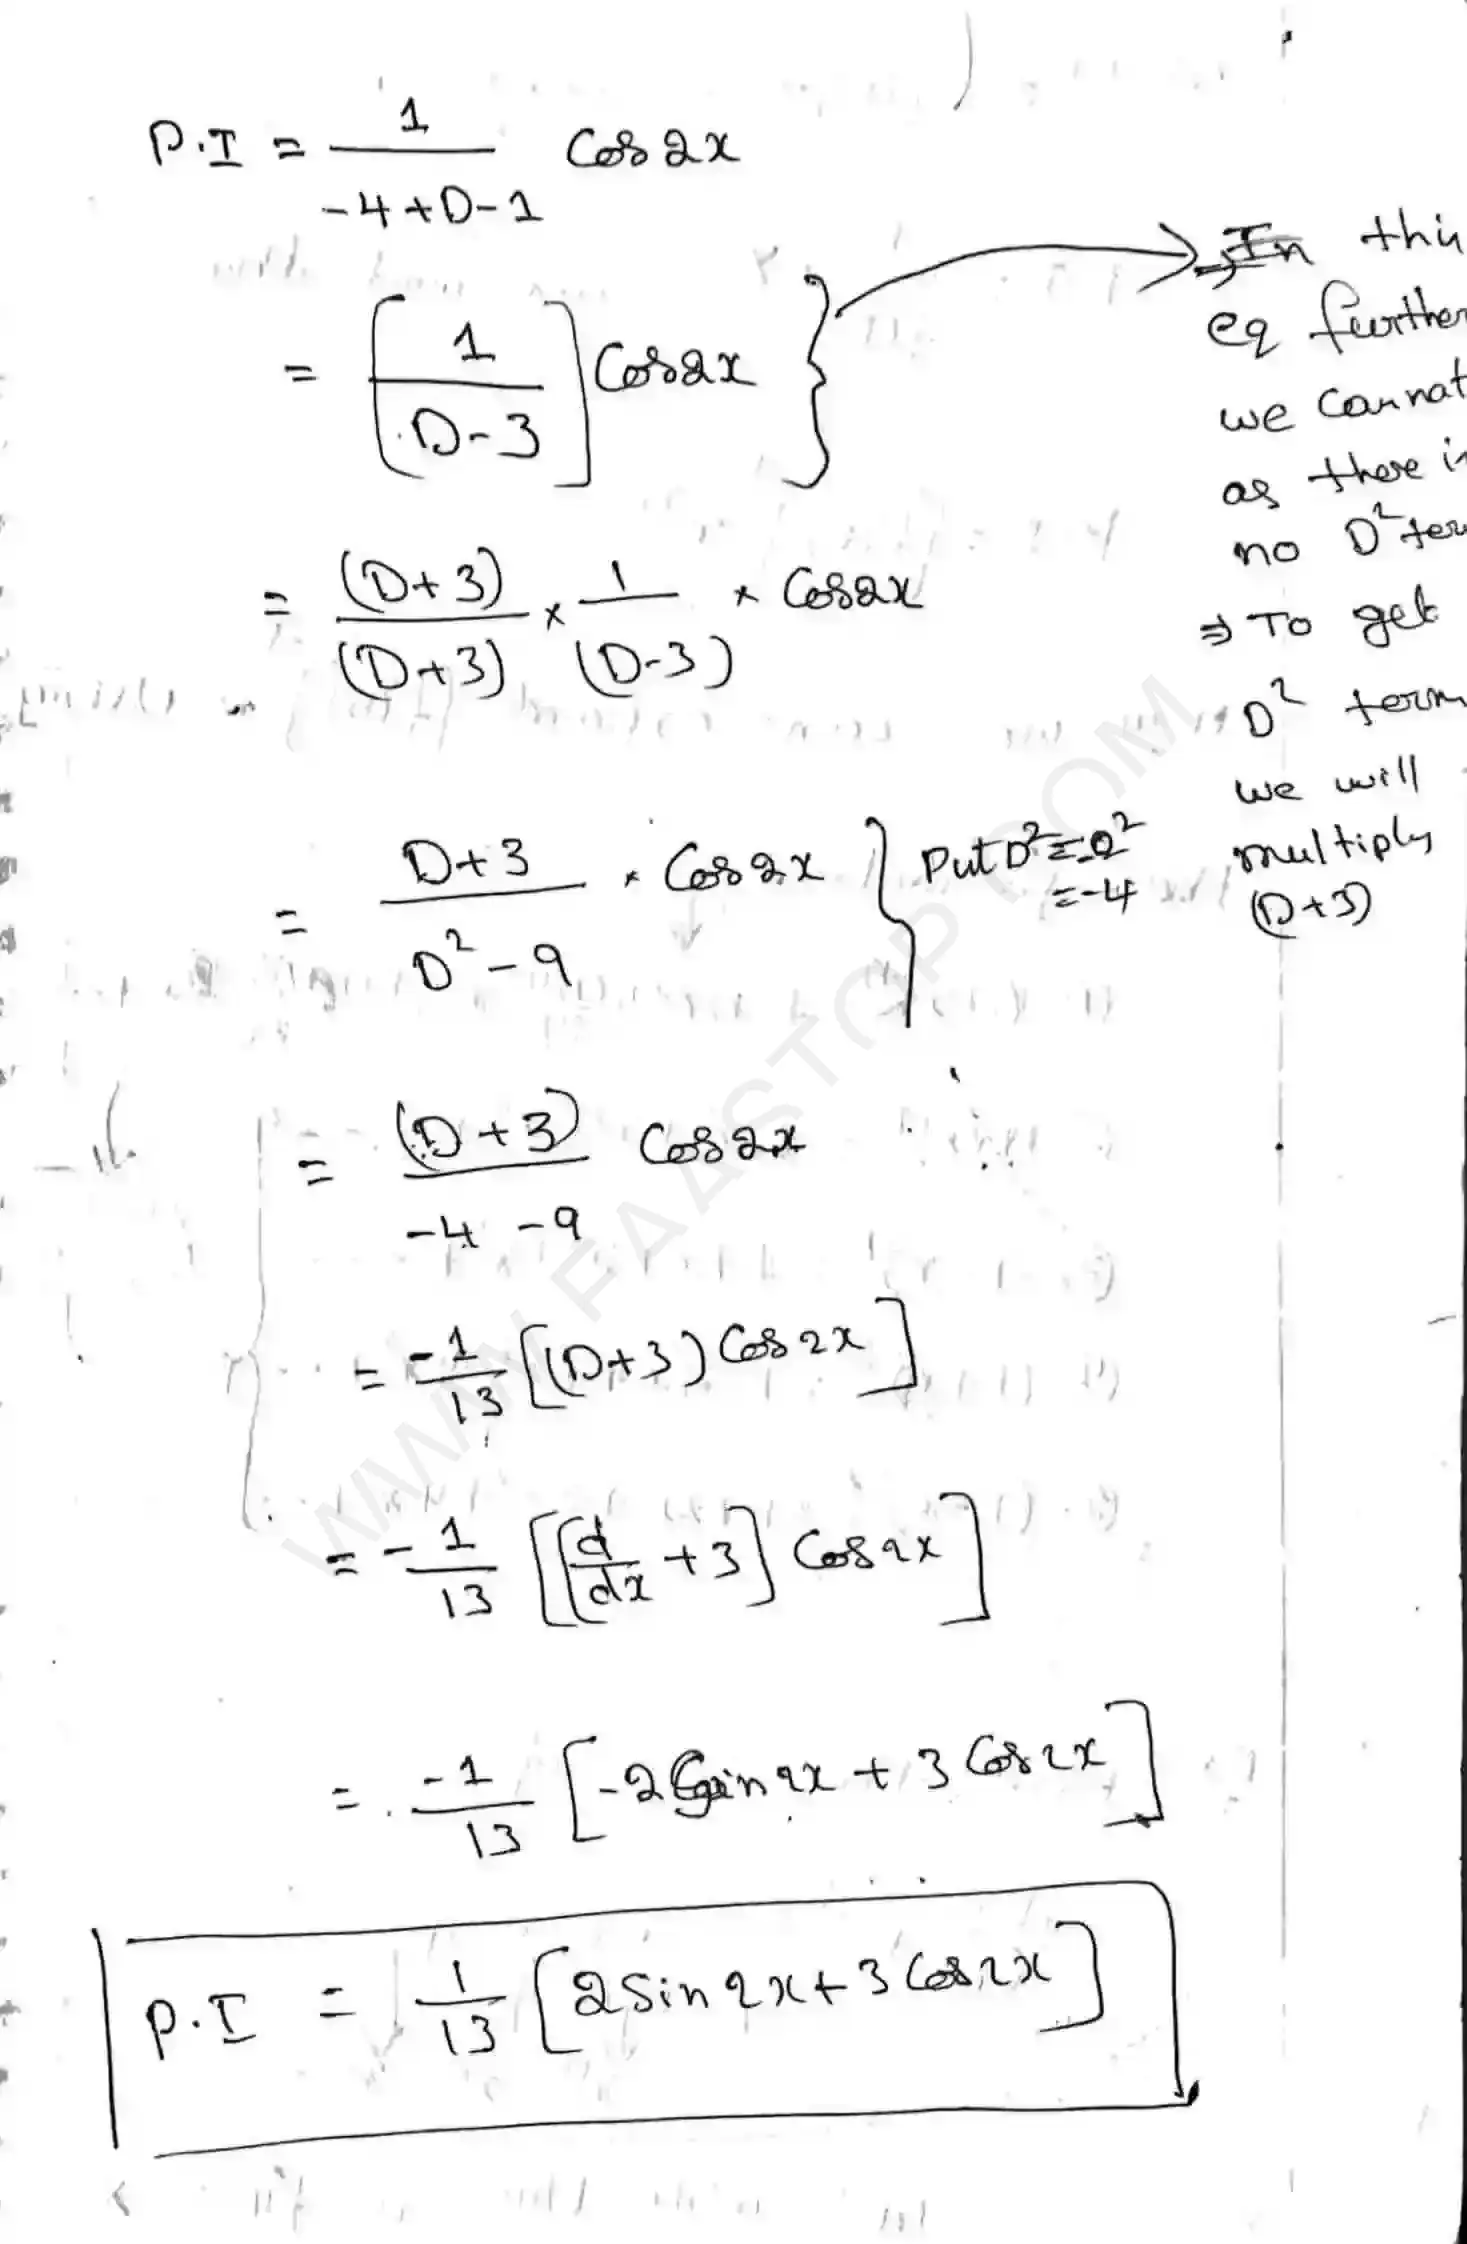 P.I = 1/(-4+D-1) Cos2x
= [1/(D-3)] Cos2x }
→ In
eq
we
as there
no D²
⇒ To get
D² term
we will
multiply
(D+3)
= (D+3)/(D+3) × 1/(D-3) × Cos2x
= D+3/(D²-9) × Cos2x } Put D²=-a²
=-4
= (D+3)/(-4-9) Cos2x
= -1/13 [(D+3) Cos2x]
= -1/13 [[d/dx +3] Cos2x]
= -1/13 [-2Sin2x + 3Cos2x]
P.I = 1/13 [2Sin2x+3Cos2x]
WWW.FAASTOP.COM